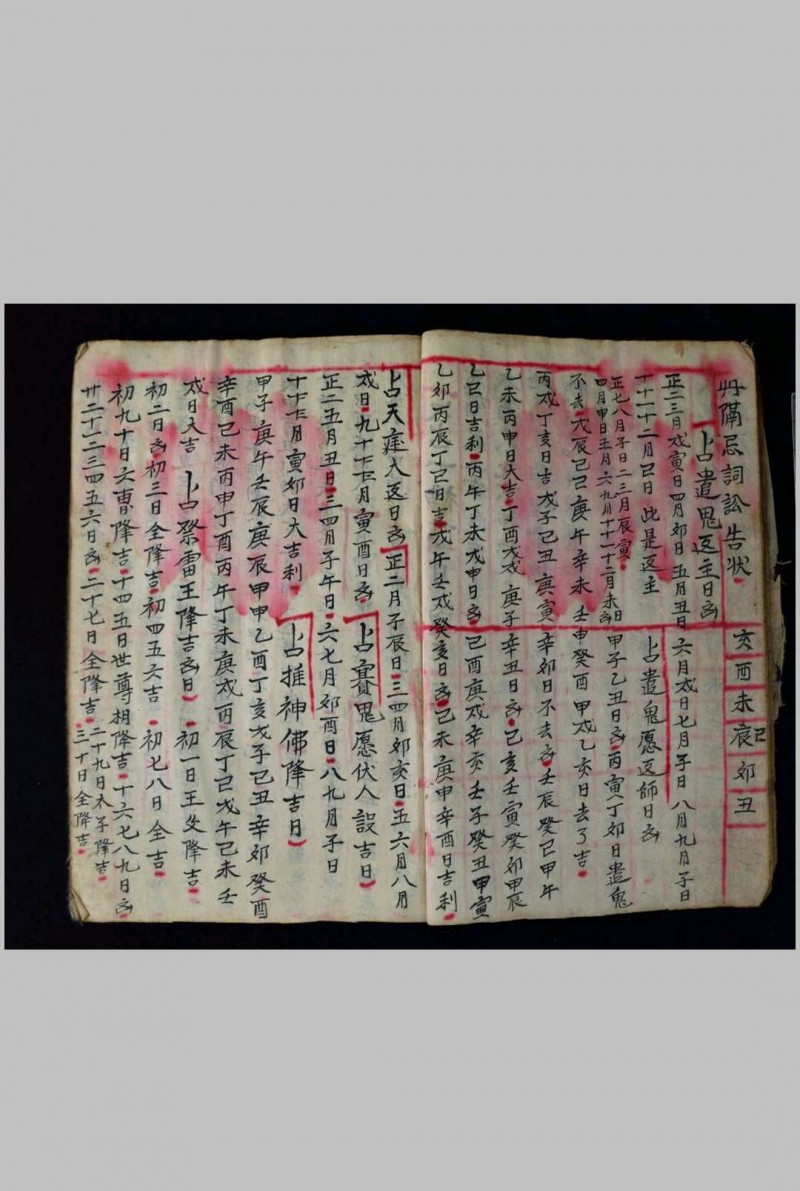 忌詞訟告状 亥酉未辰巳卯丑
占遣鬼返主日凶
正二三月戌寅日四月卯日五月丑日 六月戌日七月子日 八月九月子日
十十一十二月巳日 此是返主 占遣鬼愿返師日凶
正七八月子日二三月辰寅
四月申日五月六九月十十一十二月未日凶 甲子乙丑日凶丙寅丁卯日遣鬼
不去戊辰己巳庚午辛未壬申癸酉甲戌乙亥日去了吉
丙戌丁亥日吉戊子己丑庚寅辛卯日不去凶壬辰癸巳甲午
乙未丙申日大吉丁酉戊戌庚子辛丑日凶己亥壬寅癸卯甲辰
乙巳日吉利丙午丁未戊申日凶己酉庚戌辛亥壬子癸丑甲寅
乙卯丙辰丁巳日吉戊午壬戌癸亥日凶己未庚申辛酉日吉利
占天瘟入返日凶 正二月子辰日三四月卯亥日五六月八月
戌日九十十二月寅酉日凶 占賽鬼愿伏人設吉日
正二五月丑日三四月子午日六七月卯酉日八九月子日
十十二月寅卯日大吉利 占推神佛降吉日
甲子庚午壬辰庚辰甲申乙酉丁亥戊子己丑辛卯癸酉
辛酉己未丙申丁酉丙午丁未庚戌丙辰丁巳戊午己未壬
戌日入吉 占祭雷王降吉凶日 初一日王父降吉
初二日凶初三日全降吉初四五六吉 初七八日全吉
初九十日六曹降吉十四五日世尊相降吉十六七八九日凶
廿二十二三四五六日凶二十七日全降吉二十九日木子降吉
三十日全降吉